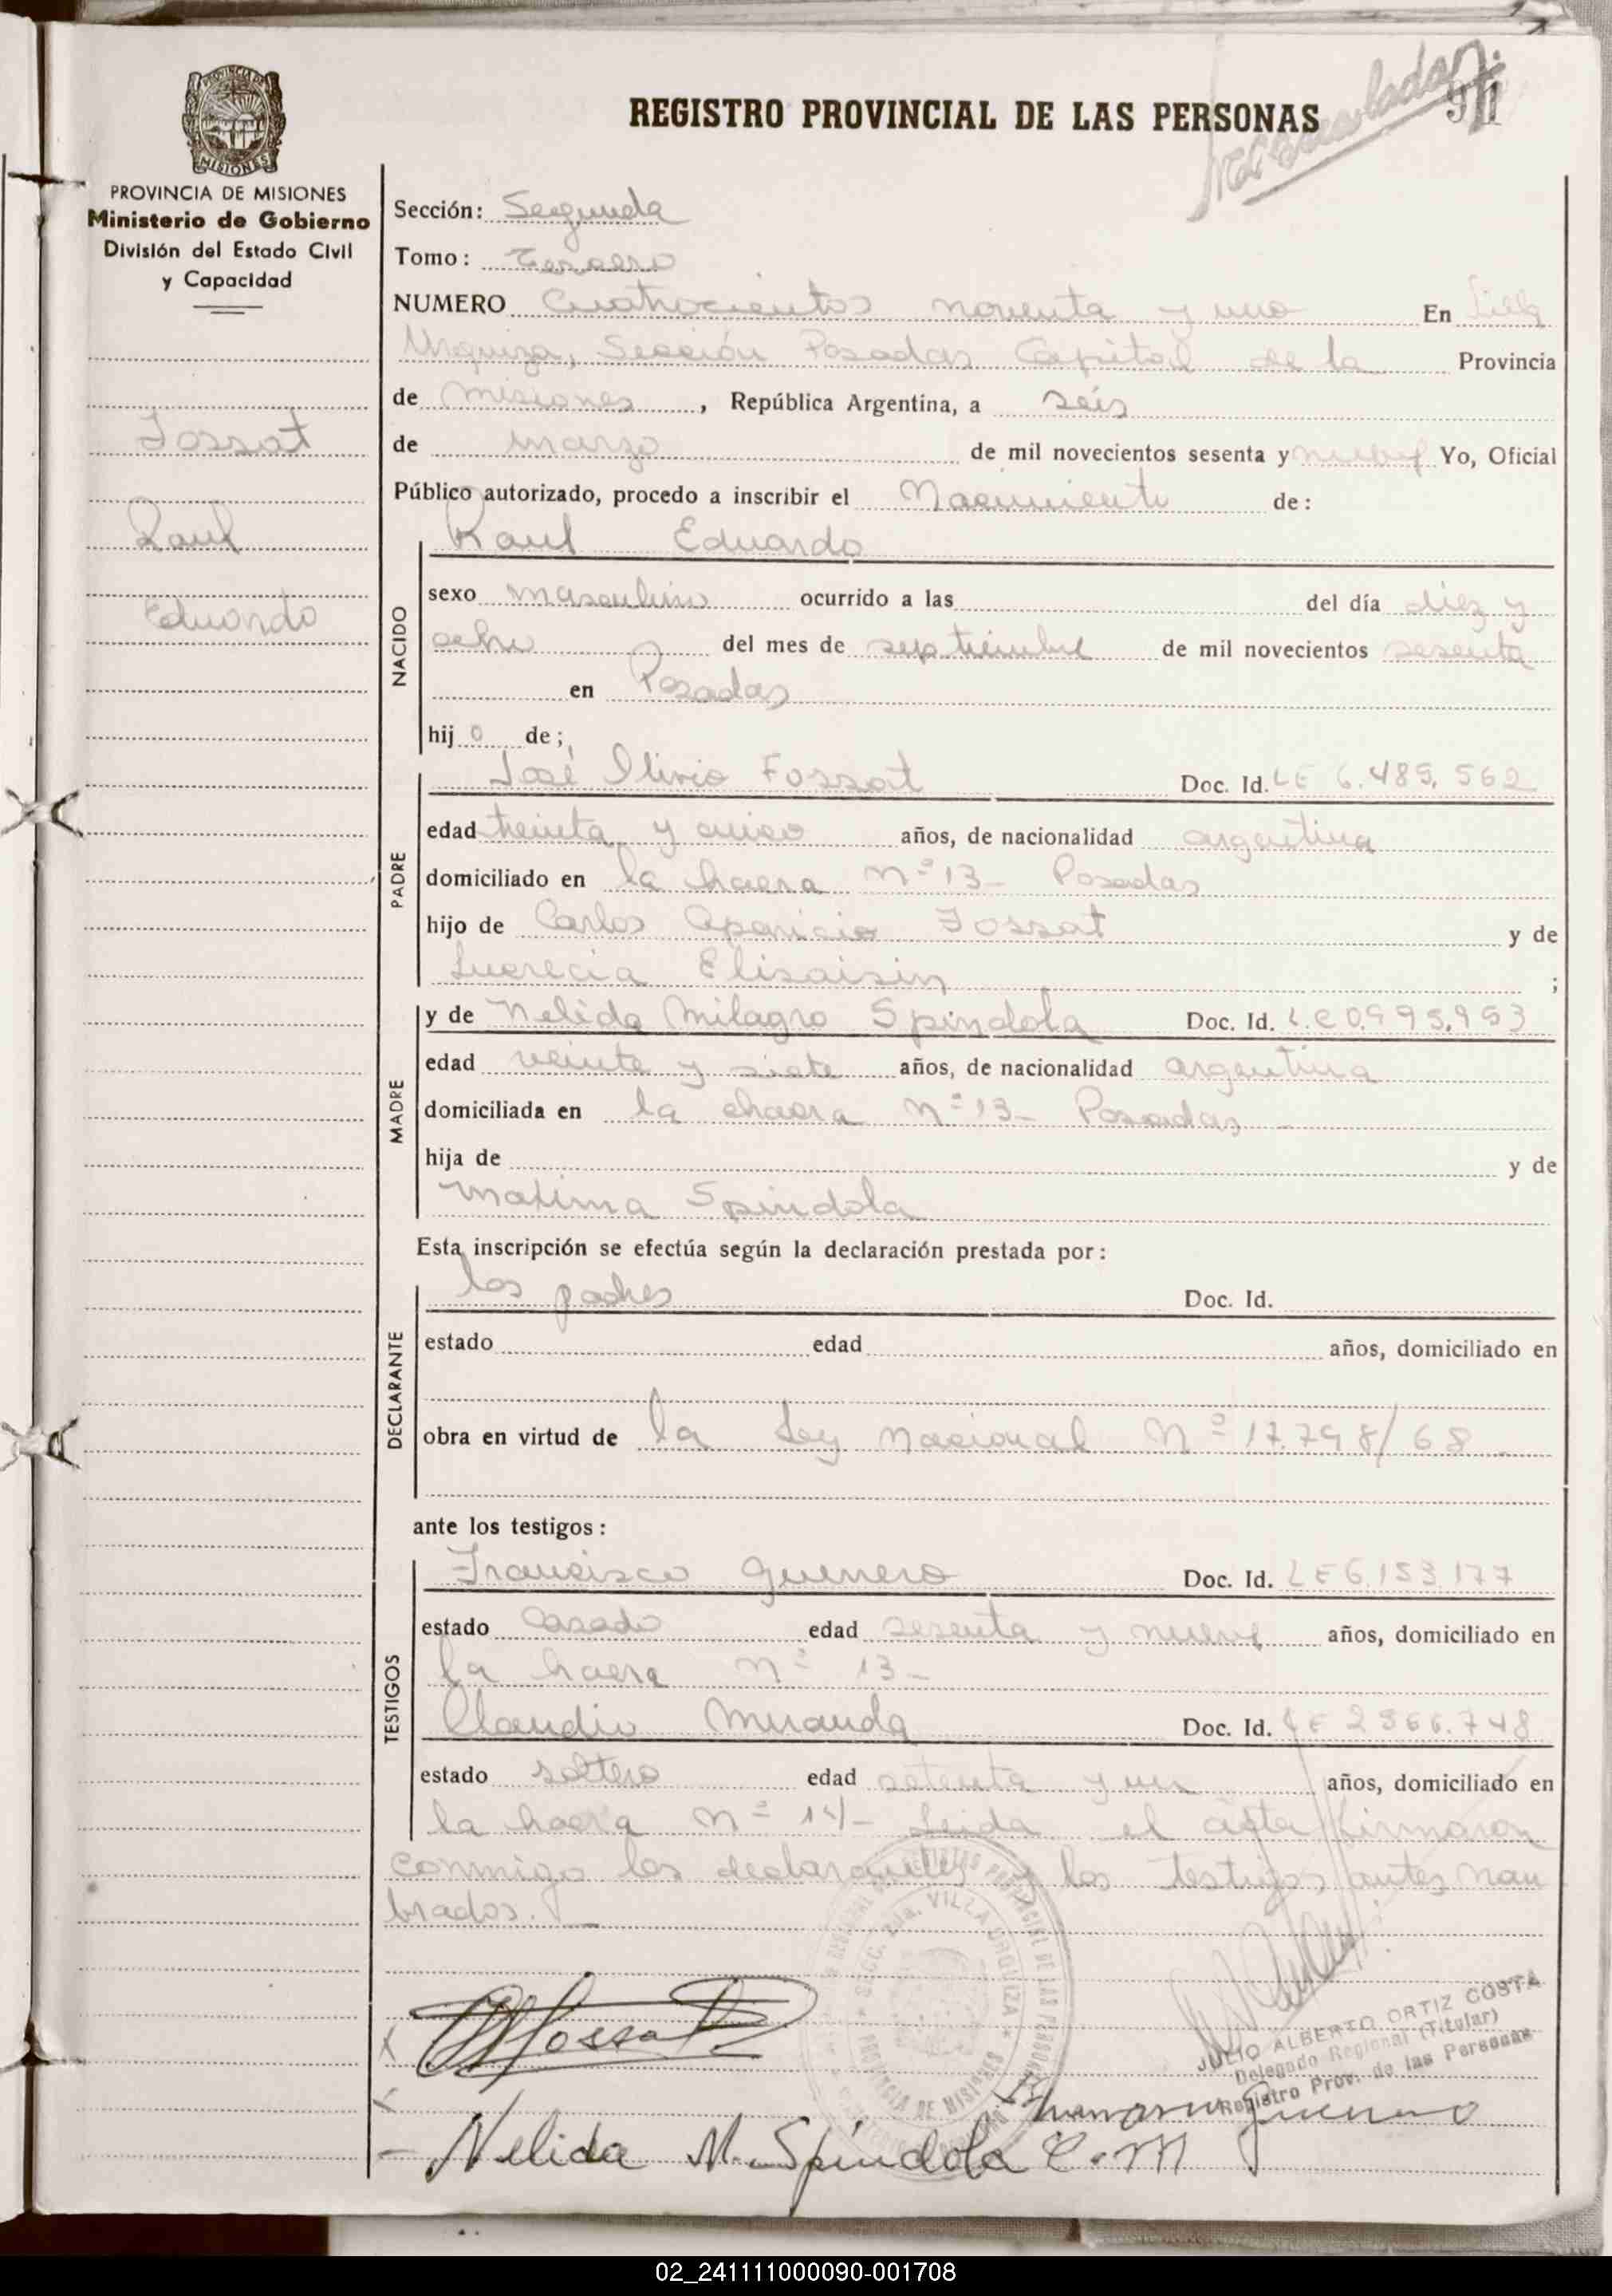 REGISTRO PROVINCIAL DE LAS PERSONAS
MISIONES
PROVINCIA DE MISIONES
Ministerio de Gobierno
División del Estado Civil
y Capacidad
Fossat
Raul
Eduardo
Sección: Segunda
Tomo: Tercero
NUMERO Cuatrocientos noventa y uno En Villa
Urquiza, Sección Posadas Capital de la Provincia
de Misiones, República Argentina, a seis
de marzo de mil novecientos sesenta y nueve Yo, Oficial
Público autorizado, procedo a inscribir el Nacimiento de:
NACIDO
Raul Eduardo
sexo masculino ocurrido a las del día diez y
ocho del mes de septiembre de mil novecientos sesenta
en Posadas
hijo de;
PADRE
José Olivio Fossat Doc. Id. LE 6.485.562
edad treinta y cinco años, de nacionalidad argentina
domiciliado en la hacra nº 13- Posadas
hijo de Carlos Aparicio Fossat y de
Lucrecia Elisaisin ;
MADRE
y de Nelida Milagro Spindola Doc. Id. L.C 0.995.953
edad veinte y siete años, de nacionalidad argentina
domiciliada en la chacra nº 13- Posadas
hija de y de
Maxima Spindola
Esta inscripción se efectúa según la declaración prestada por:
DECLARANTE
los padres Doc. Id.
estado edad años, domiciliado en
obra en virtud de la Ley Nacional Nº 17.798/68
ante los testigos:
TESTIGOS
Francisco Guerrero Doc. Id. LE 6.153.177
estado Casado edad sesenta y nueve años, domiciliado en
la hacra nº 13-
Claudio Miranda Doc. Id. LE 2.566.748
estado soltero edad setenta y un años, domiciliado en
la hacra nº 14- Leida el acta firmaron
conmigo los declarantes y los testigos antes nom
brados.
SECC. 2da. VILLA URQUIZA
PROVINCIA DE MISIONES
JULIO ALBERTO ORTIZ COSTA
Delegado Regional (Titular)
Registro Prov. de las Personas
Fossat
Guerrero
Nelida M. Spíndola C. M
02_241111000090-001708